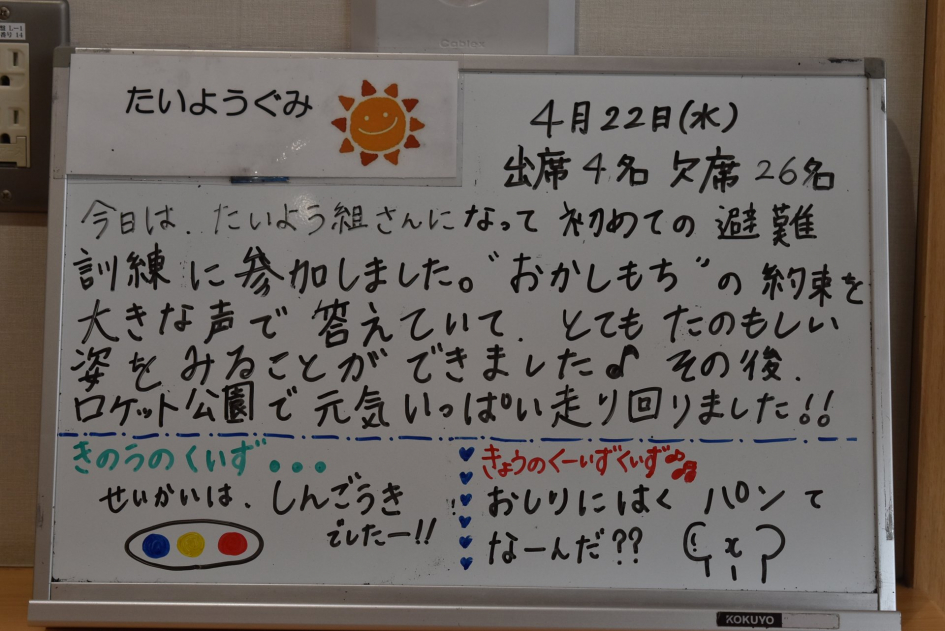 たいようぐみ
4月22日(水)
出席4名 欠席26名
今日は、たいよう組さんになって初めての避難
訓練に参加しました。"おかしもち"の約束を
大きな声で答えていて、とてもたのもしい
姿をみることができました♪その後、
ロケット公園で元気いっぱい走り回りました!!
きのうのくいず...
せいかいは、しんごうき
でしたー!!
きょうのくーいずくいず♫
おしりにはくパンて
なーんだ??
KOKUYO